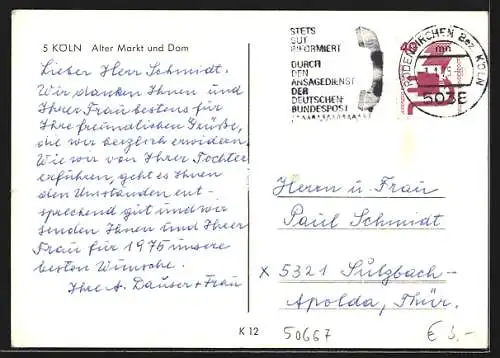 5 KÖLN Alter Markt und Dom
Lieber Herr Schmidt.
Wir danken Ihnen und
Ihrer Frau bestens für
Ihre freundlichen Grüße,
die wir herzlich erwidern.
Wie wir von Ihrer Tochter
erfuhren, geht es Ihnen
den Umständen ent-
sprechend gut und wir
senden Ihnen und Ihrer
Frau für 1975 unsere
besten Wünsche.
Ihre A. Dauser + Frau
STETS
GUT
INFORMIERT
DURCH
DEN
ANSAGEDIENST
DER
DEUTSCHEN
BUNDESPOST
RODENKIRCHEN Bez. KÖLN
mn
5038
Herrn u. Frau
Paul Schmidt
x 5321 Sulzbach-
Apolda, Thür.
K 12
50667
€ 3,-